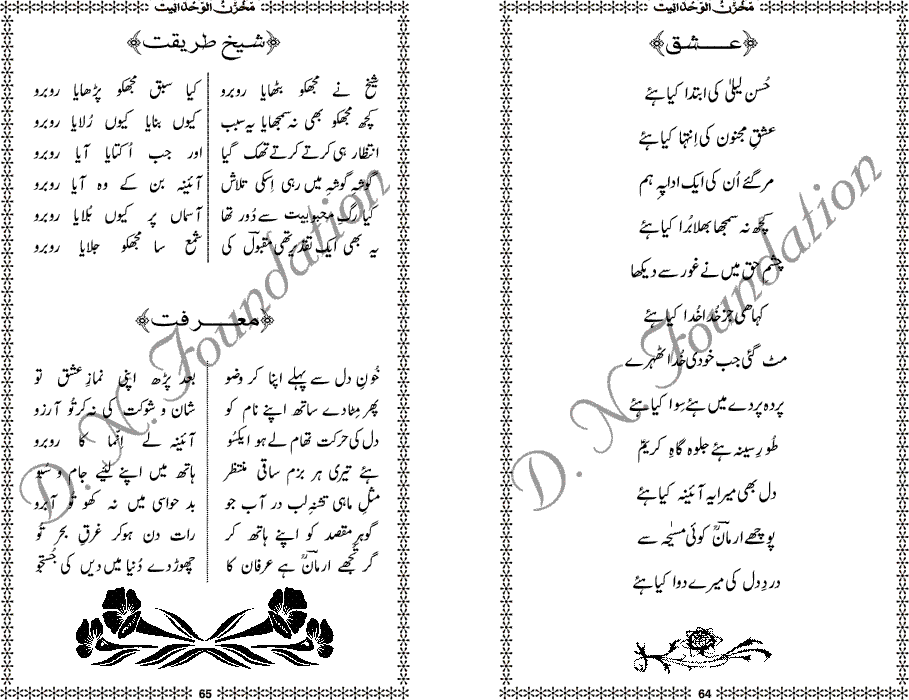 مَخْزَنُ الوَحْدَانِیت
عشق
حُسن لیلیٰ کی ابتدا کیا ہئے
عشقِ مجنون کی اِنتہا کیا ہئے
مر گئے اُن کی ایک ادا پہ ہم
کچُھ نہ سمجھا بھلا بُرا کیا ہئے
چشمِ حق میں نے غور سے دیکھا
کہا ھی جز خُدا خُدا کیا ہئے
مٹ گئی جب خودی خُدا ٹھہرے
پردہ پردے میں ہئے سِوا کیا ہئے
طُورِ سینہ ہئے جلوہ گاہِ کریم
دل بھی میرا یہ آئینہ کیا ہئے
پوچھے ارمانؔ کوئی مسیحٰہ سے
دردِ دل کی میرے دوا کیا ہئے
64
مَخْزَنُ الوَحْدَانِیت
شیخ طریقت
شیخ نے مجھکو بٹھایا روبرو
کیا سبق مجھکو پڑھایا روبرو
کچھ مجھکو بھی نہ سمجھایا یہ سبب
کیوں بنایا کیوں رُلایا روبرو
انتظار ہی کرتے کرتے تھک گیا
اور جب اُکتایا آیا روبرو
گوشہ گوشہ میں رہی اِسکی تلاش
آئینہ بن کے وہ آیا روبرو
کیا رگِ محبوبیت سے دُور تھا
آسماں پر کیوں بُلایا روبرو
یہ بھی ایک تقدیر تھی مقبولؔ کی
شمع سا مجھکو جلایا روبرو
معرفت
خُونِ دل سے پہلے اپنا کر وضو
بعد پڑھ اپنی نمازِ عشق تو
پھر مِٹادے ساتھ اپنے نام کو
شان و شوکت کی نہ کر تُو آرزو
دل کی حرکت تھام لے ہو ایکسُو
آئینہ لے اِنّما کا روبرو
ہئے تیری ہر بزم ساقی منتظر
ہاتھ میں اپنے لئیے جام و سبو
مثلِ ماہی تشنہ لب در آب جو
بد حواسی میں نہ کھو تُو آبرو
گوہرِ مقصد کو اپنے ہاتھ کر
رات دن ہوکر غرقِ بحر تُو
گر تجُھے ارمانؔ ہے عرفان کا
چھوڑ دے دُنیا میں دیں کی جُستجو
65
D. N. Foundation
D. N. Foundation